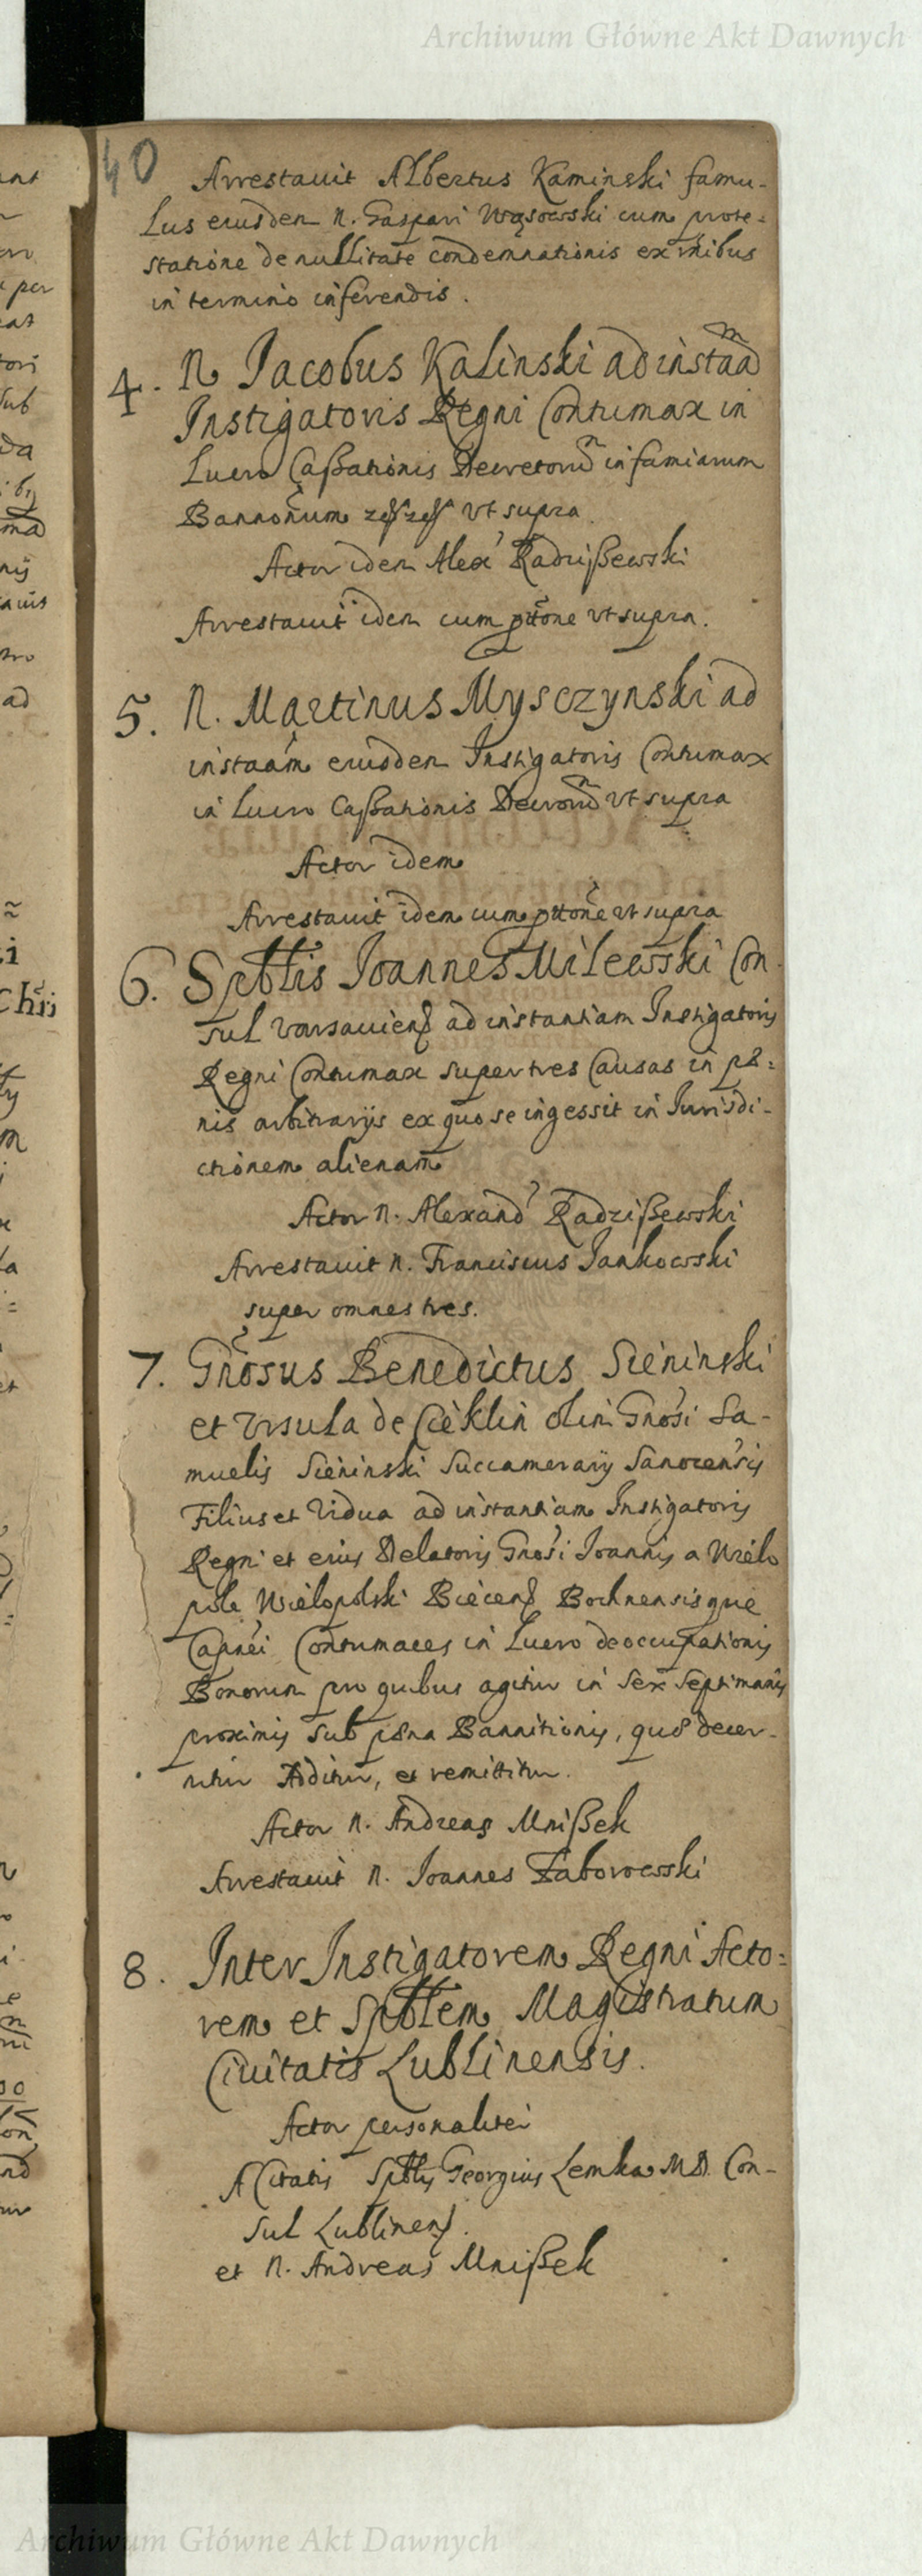 Archiwum Główne Akt Dawnych
40
Arrestauit Albertus Kaminski famu-
lus eiusdem N. Gaspari Wąsowski cum prote-
statione de nullitate condemnationis ex ribus
in termino inferendis.
4. N Jacobus Kalinski ad instaã
Instigatoris Regni Contumax in
Lucro Caßationis Decretorũ infamiarum
Bannonum ut supra
Actor idem Alex Radzißewski
Arrestauit idem cum pttone ut supra.
5. N. Martinus Mysczynski ad
instaãm eiusdem Instigatoris Contumax
in Lucro Caßationis Decrorũ ut supra
Actor idem
Arrestauit idem cum pttone ut supra
6. Spttlis Joannes Milewski Con-
sul Varsauiens ad instantiam Instigatoris
Regni Contumax super tres Causas in pæ=
nis arbitrarijs ex quo se ingessit in Jurisdi-
ctionem alienam
Actor N. Alexand Radzißewski
Arrestauit N. Franciscus Jankowski
super omnes tres.
7. Gnosus Benedictus Sieninski
et Vrsula de Cieklin olim Gnosi Sa-
muelis Sieninski Succamerarij Sanocensis
Filius et Vidua ad instantiam Instigatoris
Regni et eius Delatoris Gnosi Joannis a Wielo
pole Wielopolski Biecens Bochnensisque
Capnei Contumaces in Lucro deoccupationis
Bonorum pro quibus agitur in sex septimanis
proximis sub pæna Bannitionis, quæ decer-
nitur Additur, et remittitur.
Actor N. Andreas Mnißek
Arrestauit N. Joannes Zaborowski
8. Inter Instigatorem Regni Acto=
rem et Spttlem Magistratum
Ciuitatis Lublinensis.
Actor personaliter
A Citatis Spttlis Georgius Lemka MD. Con-
sul Lublinens.
et N. Andreas Mnißek
Archiwum Główne Akt Dawnych